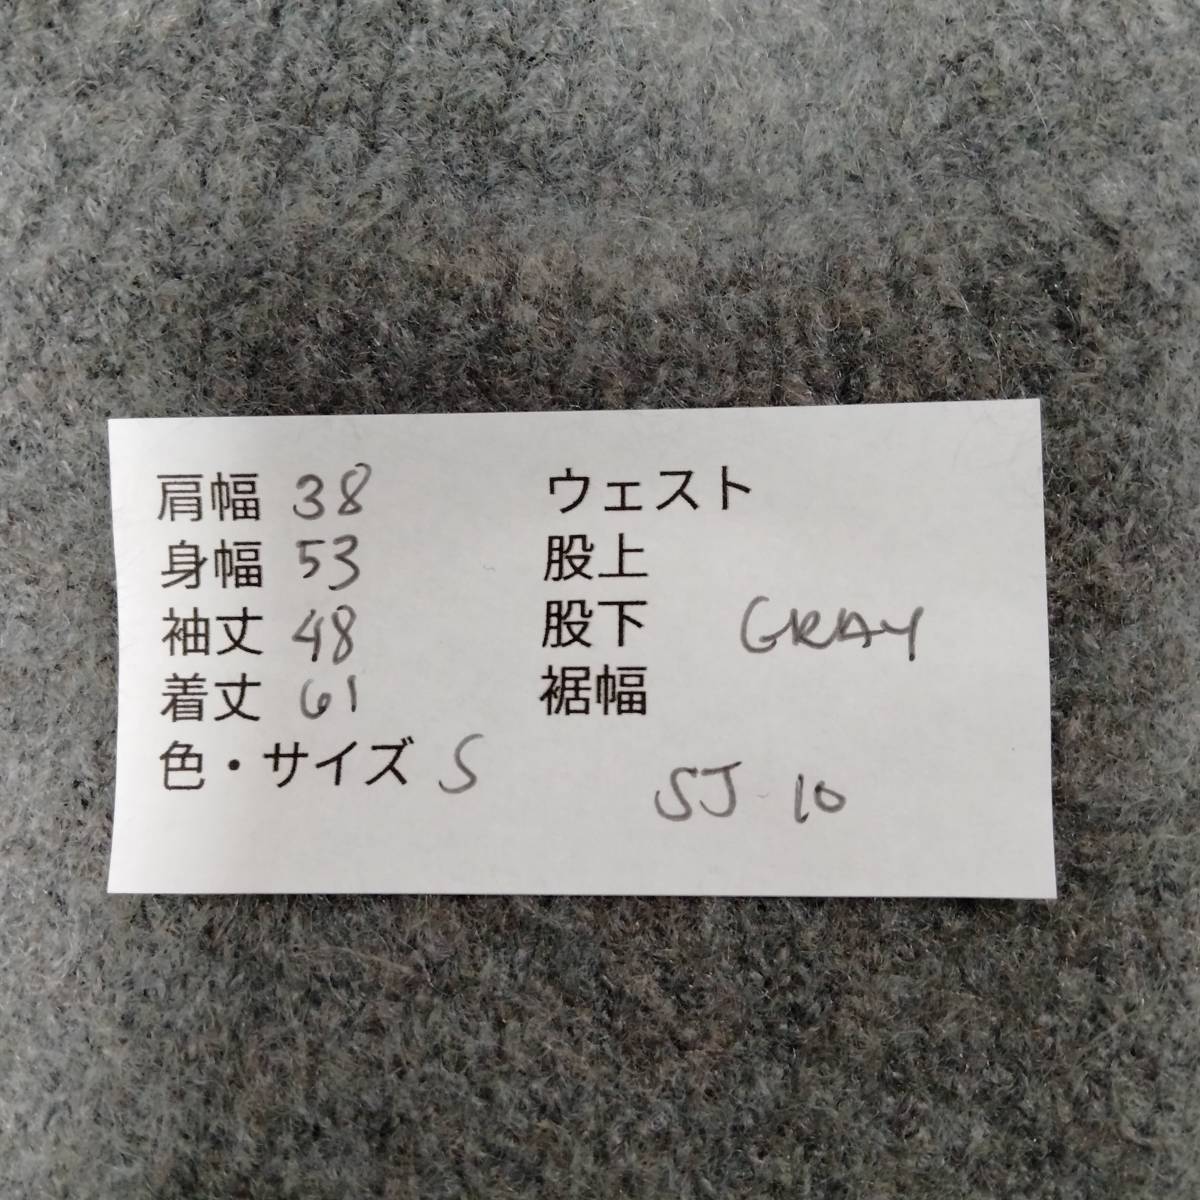 肩幅 38
身幅 53
袖丈 48
着丈 61
色・サイズ S
ウェスト
股上
股下 GRAY
裾幅
SJ-10